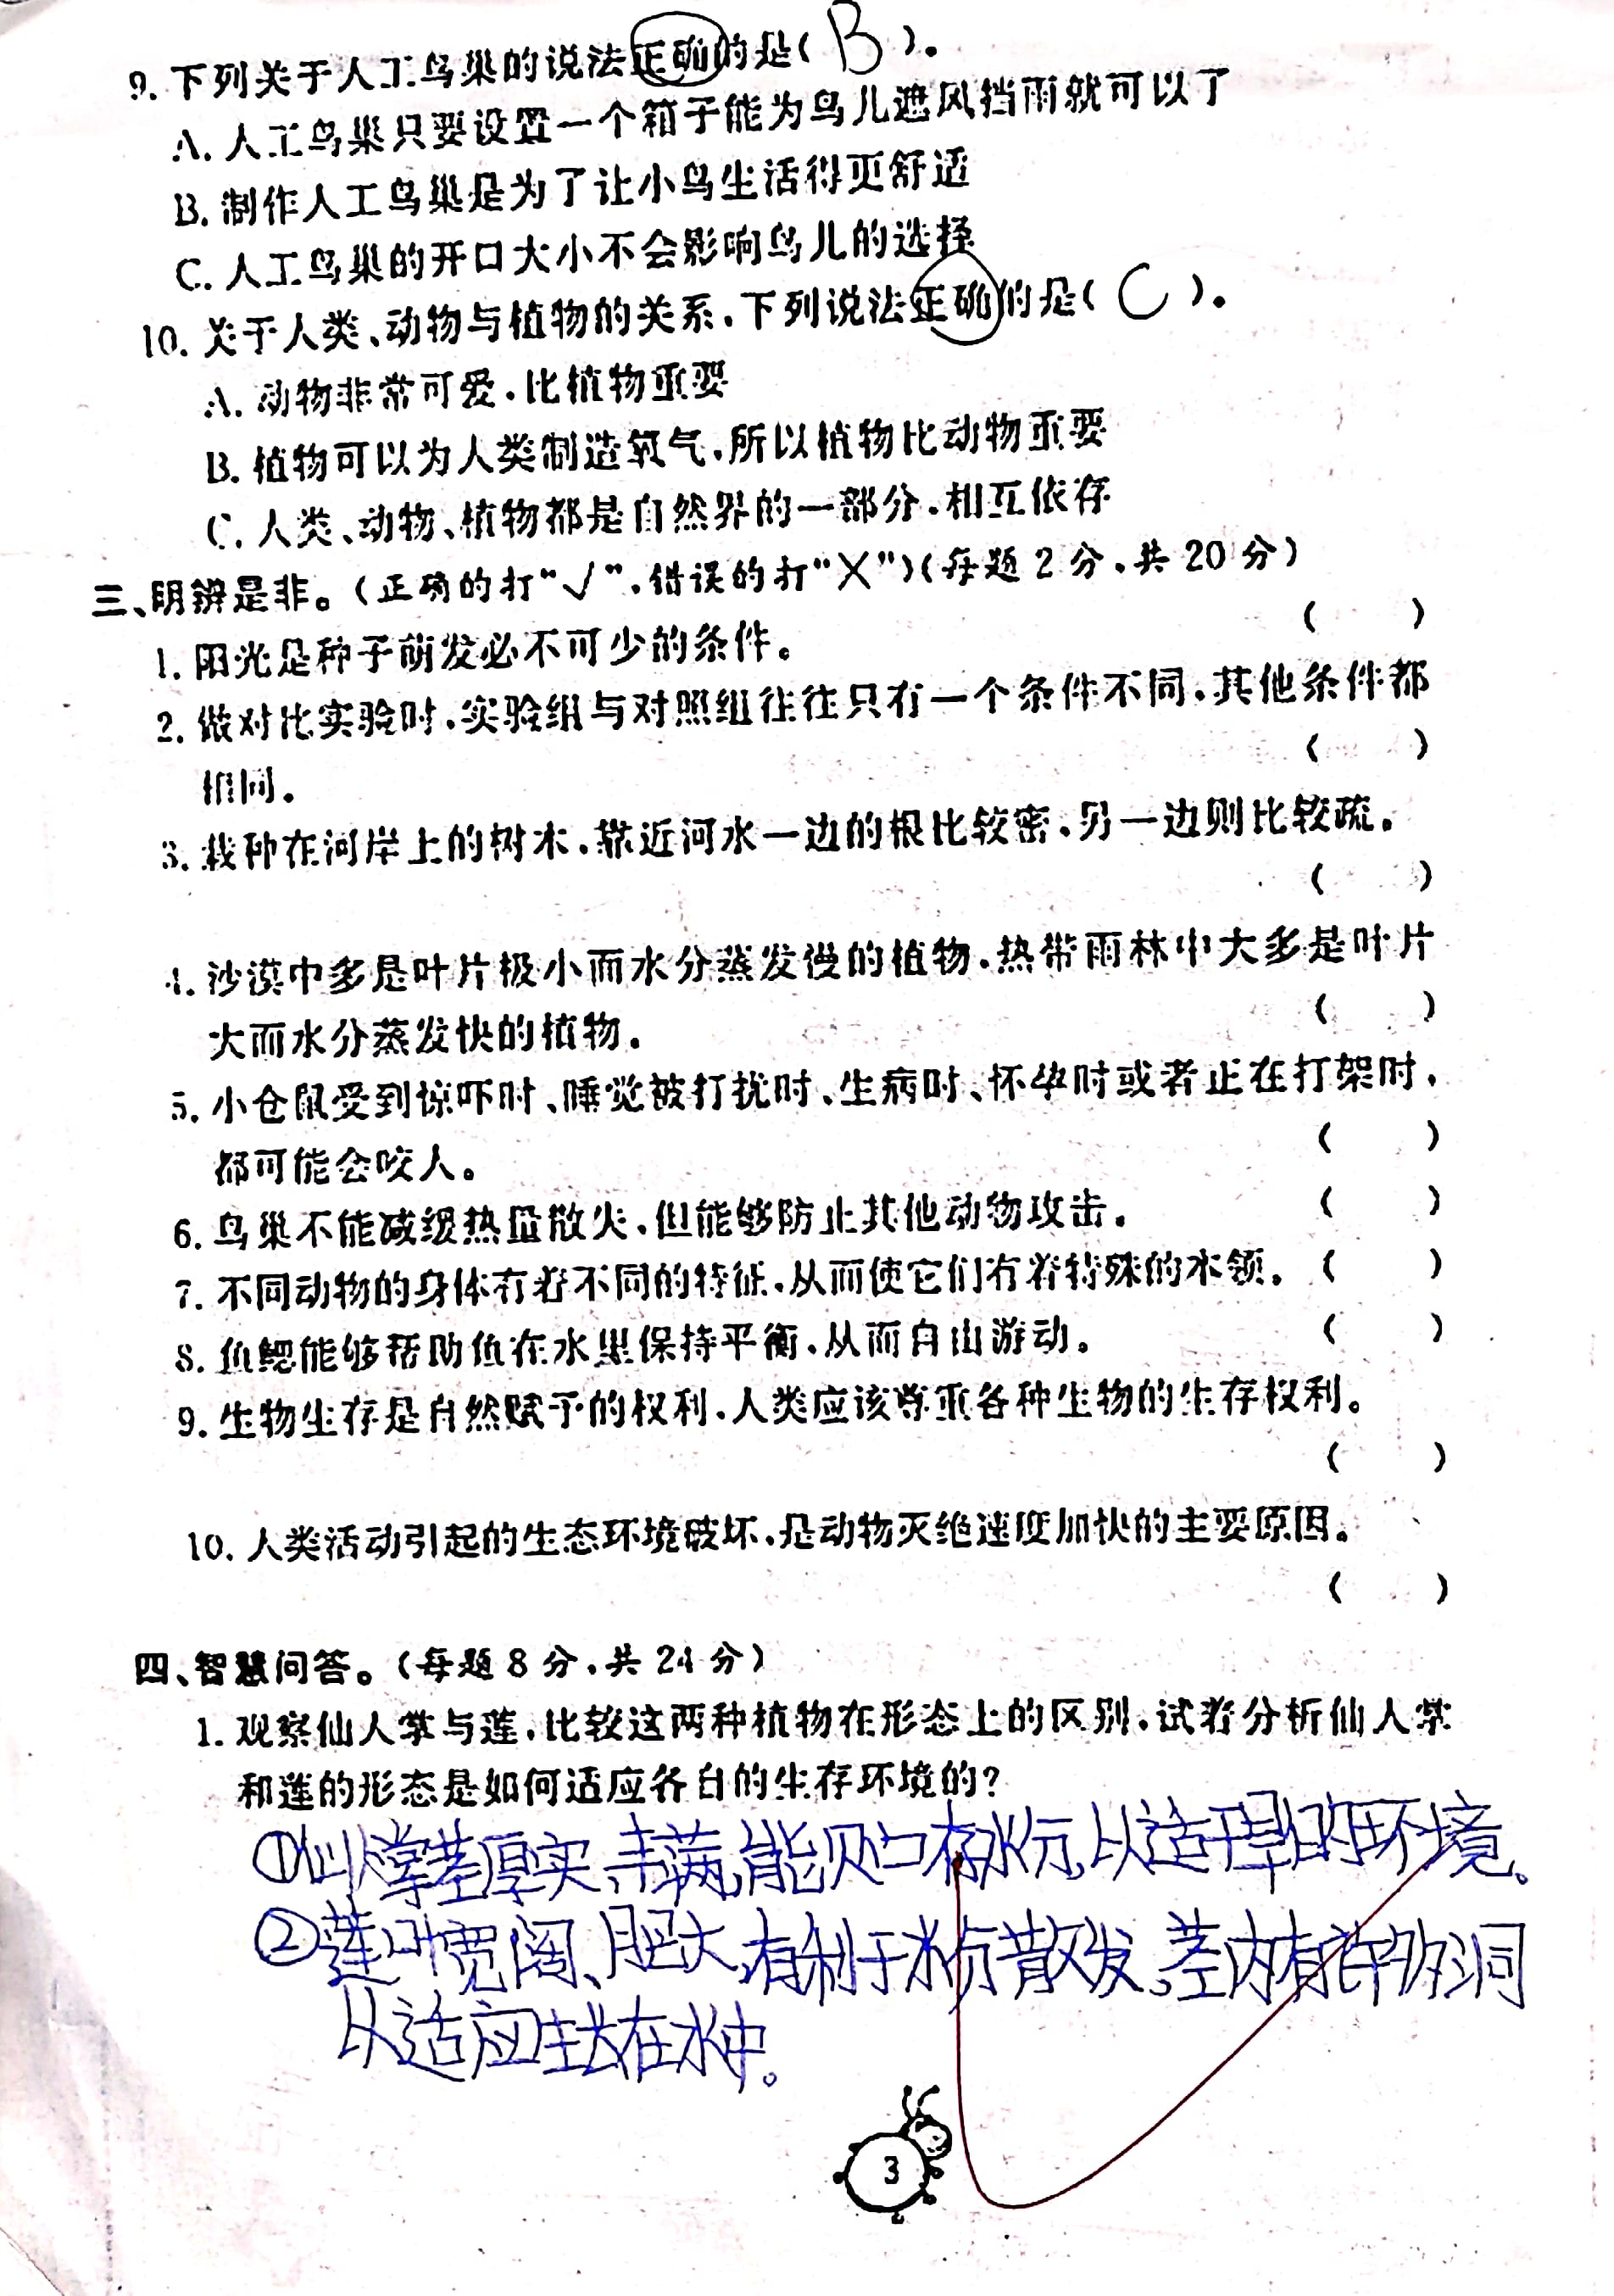 9. 下列关于人工鸟巢的说法正确的是( B )。
A. 人工鸟巢只要设置一个箱子能为鸟儿遮风挡雨就可以了
B. 制作人工鸟巢是为了让小鸟生活得更舒适
C. 人工鸟巢的开口大小不会影响鸟儿的选择
10. 关于人类、动物与植物的关系,下列说法正确的是( C )。
A. 动物非常可爱,比植物重要
B. 植物可以为人类制造氧气,所以植物比动物重要
C. 人类、动物、植物都是自然界的一部分,相互依存
三、明辨是非。(正确的打“√”,错误的打“×”)(每题 2 分,共 20 分)
1. 阳光是种子萌发必不可少的条件。 ( )
2. 做对比实验时,实验组与对照组往往只有一个条件不同,其他条件都
相同。 ( )
3. 栽种在河岸上的树木,靠近河水一边的根比较密,另一边则比较疏。
( )
4. 沙漠中多是叶片极小而水分蒸发慢的植物,热带雨林中大多是叶片
大而水分蒸发快的植物。 ( )
5. 小仓鼠受到惊吓时、睡觉被打扰时、生病时、怀孕时或者正在打架时,
都可能会咬人。 ( )
6. 鸟巢不能减缓热量散失,但能够防止其他动物攻击。 ( )
7. 不同动物的身体有着不同的特征,从而使它们有着特殊的本领。 ( )
8. 鱼鳃能够帮助鱼在水里保持平衡,从而自由游动。 ( )
9. 生物生存是自然赋予的权利,人类应该尊重各种生物的生存权利。
( )
10. 人类活动引起的生态环境破坏,是动物灭绝速度加快的主要原因。
( )
四、智慧问答。(每题 8 分,共 24 分)
1. 观察仙人掌与莲,比较这两种植物在形态上的区别,试着分析仙人掌
和莲的形态是如何适应各自的生存环境的?
①仙人掌茎厚实、丰满,能贮存水分,以适干旱的环境。
②莲叶宽阔、肥大,有利于水分散发,茎内有许多洞
以适应生长在水中。
3